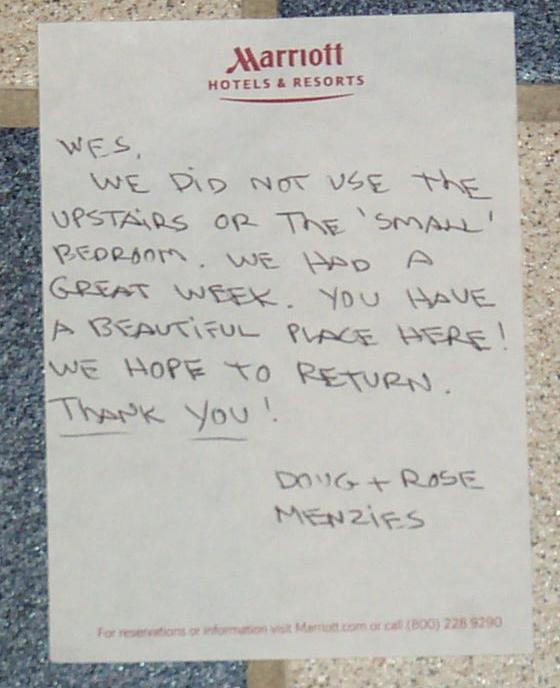 Marriott
HOTELS & RESORTS
WES,
WE DID NOT USE THE
UPSTAIRS OR THE 'SMALL'
BEDROOM. WE HAD A
GREAT WEEK. YOU HAVE
A BEAUTIFUL PLACE HERE!
WE HOPE TO RETURN.
THANK YOU!
DOUG + ROSE
MENZIES
For reservations or information visit Marriott.com or call (800) 228 9290